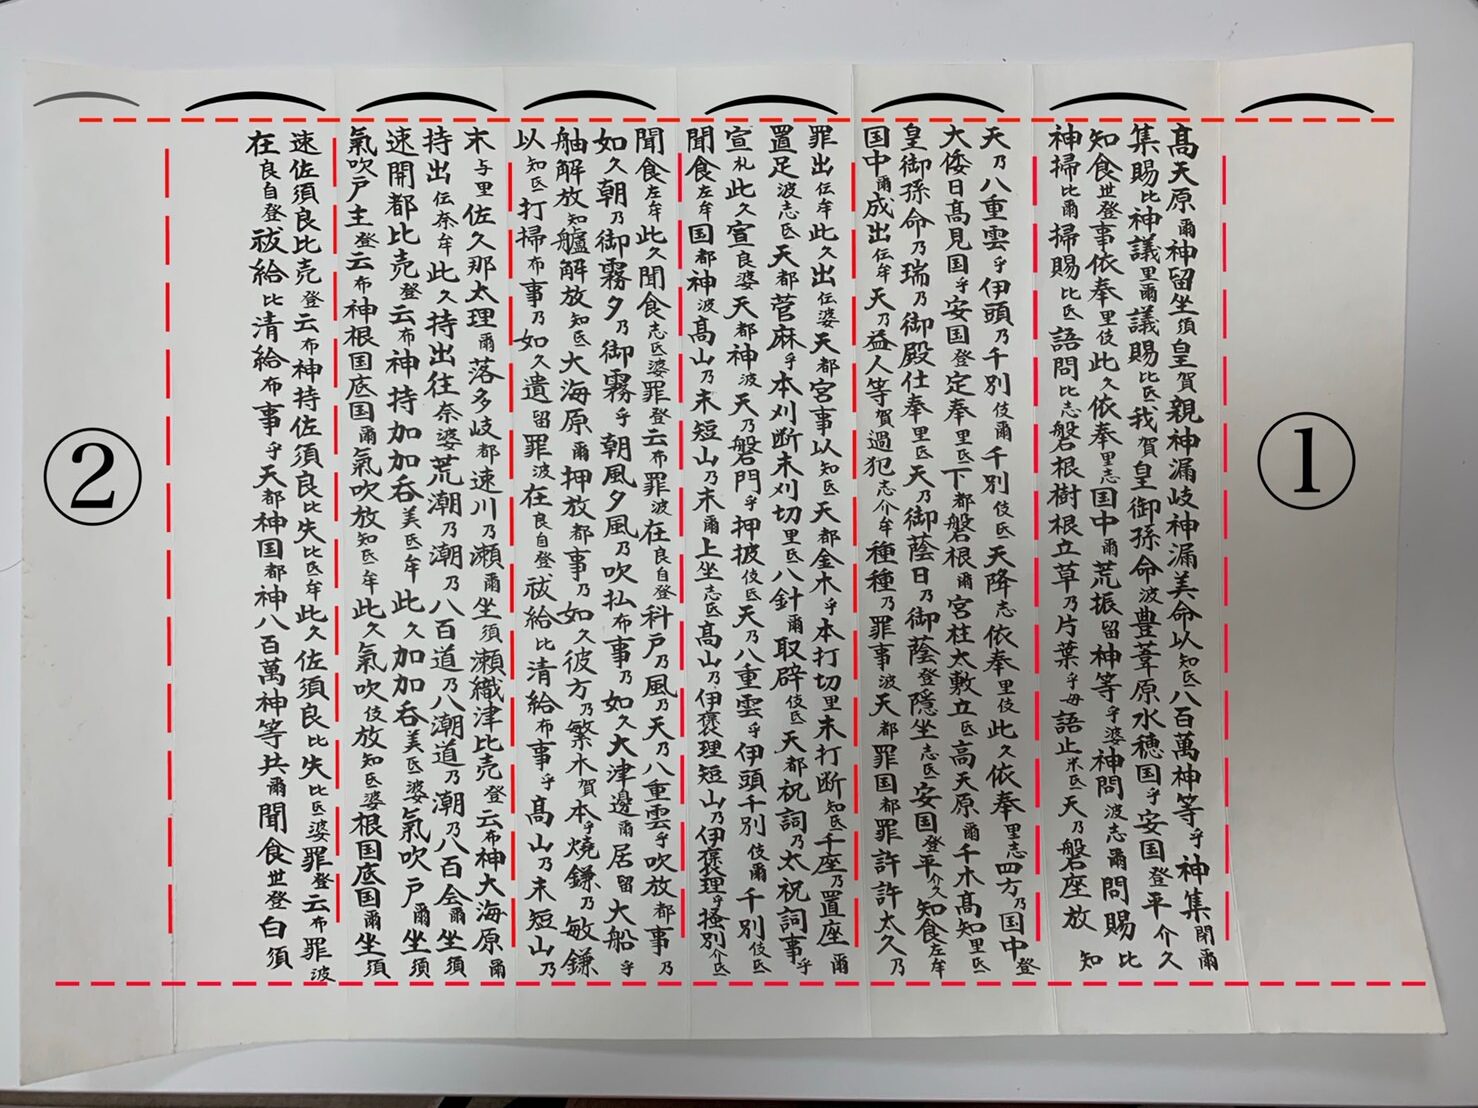 ①
高天原爾神留坐須皇賀親神漏岐神漏美命以知氐八百萬神等乎神集閉爾
集賜比神議里爾議賜比氐我賀皇御孫命波豊葦原水穂国乎安国登平介久
知食世登事依奉里伎此久依奉里志国中爾荒振留神等乎婆神問波志爾問賜比
神掃比爾掃賜比氐語問比志磐根樹根立草乃片葉乎毋語止米氐天乃磐座放知
天乃八重雲乎伊頭乃千別伎爾千別伎氐天降志依奉里伎此久依奉里志四方乃国中登
大倭日高見国乎安国登定奉里氐下都磐根爾宮柱太敷立氐高天原爾千木高知里氐
皇御孫命乃瑞乃御殿仕奉里氐天乃御蔭日乃御蔭登隠坐志氐安国登平介久知食左牟
国中爾成出伝牟天乃益人等賀過犯志介牟種種乃罪事波天都罪国都罪許許太久乃
罪出伝牟此久出伝婆天都宮事以知氐天都金木乎本打切里末打断知氐千座乃置座爾
置足波志氐天都菅麻乎本刈断末刈切里氐八針爾取辟伎氐天都祝詞乃太祝詞事乎
宣礼此久宣良婆天都神波天乃磐門乎押披伎氐天乃八重雲乎伊頭千別伎爾千別伎氐
聞食左牟国都神波高山乃末短山乃末爾上坐志氐高山乃伊褒理短山乃伊褒理乎掻別介氐
聞食左牟此久聞食志氐婆罪登云布罪波在良自登科戸乃風乃天乃八重雲乎吹放都事乃
如久朝乃御霧夕乃御霧乎朝風夕風乃吹払布事乃如久大津邊爾居留大船乎
舳解放知艫解放知氐大海原爾押放都事乃如久彼方乃繁木賀本乎焼鎌乃敏鎌
以知氐打掃布事乃如久遺留罪波在良自登祓給比清給布事乎高山乃末短山乃
末与里佐久那太理爾落多岐都速川乃瀬爾坐須瀬織津比売登云布神大海原爾
持出伝奈牟此久持出往奈婆荒潮乃潮乃八百道乃八潮道乃潮乃八百会爾坐須
速開都比売登云布神持加加呑美氐牟此久加加呑美氐婆氣吹戸爾坐須
氣吹戸主登云布神根国底国爾氣吹放知氐牟此久氣吹伎放知氐婆根国底国爾坐須
速佐須良比売登云布神持佐須良比失比氐牟此久佐須良比失比氐婆罪登云布罪波
在良自登祓給比清給布事乎天都神国都神八百萬神等共爾聞食世登白須
②